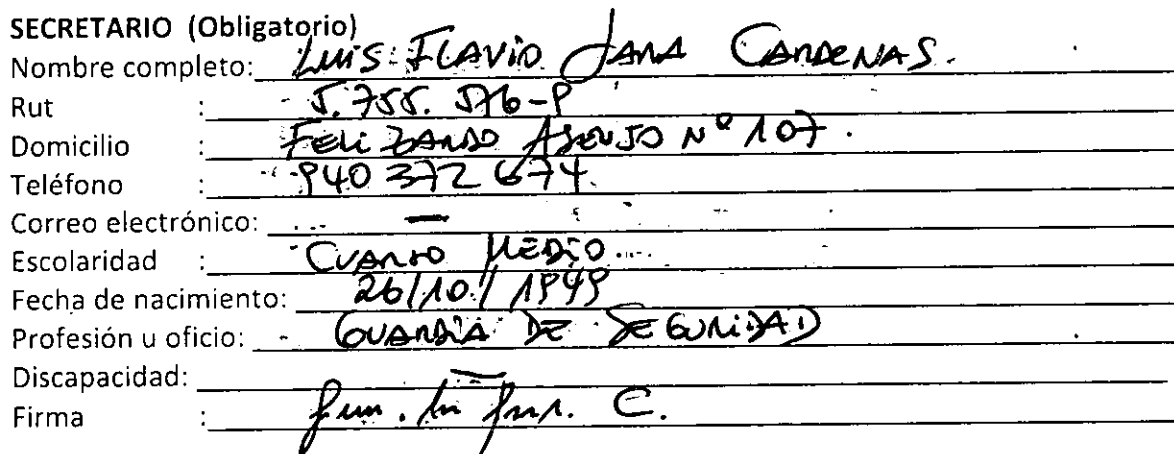 SECRETARIO (Obligatorio)
Nombre completo: LUIS FLAVIO JARA CARDENAS.
Rut : 5.755.576-9
Domicilio : FELIZARDO ASENJO Nº 107.
Teléfono : 940 372 674.
Correo electrónico: —
Escolaridad : CUARTO MEDIO
Fecha de nacimiento: 26/10/1949
Profesión u oficio: GUARDIA DE SEGURIDAD
Discapacidad: —
Firma :